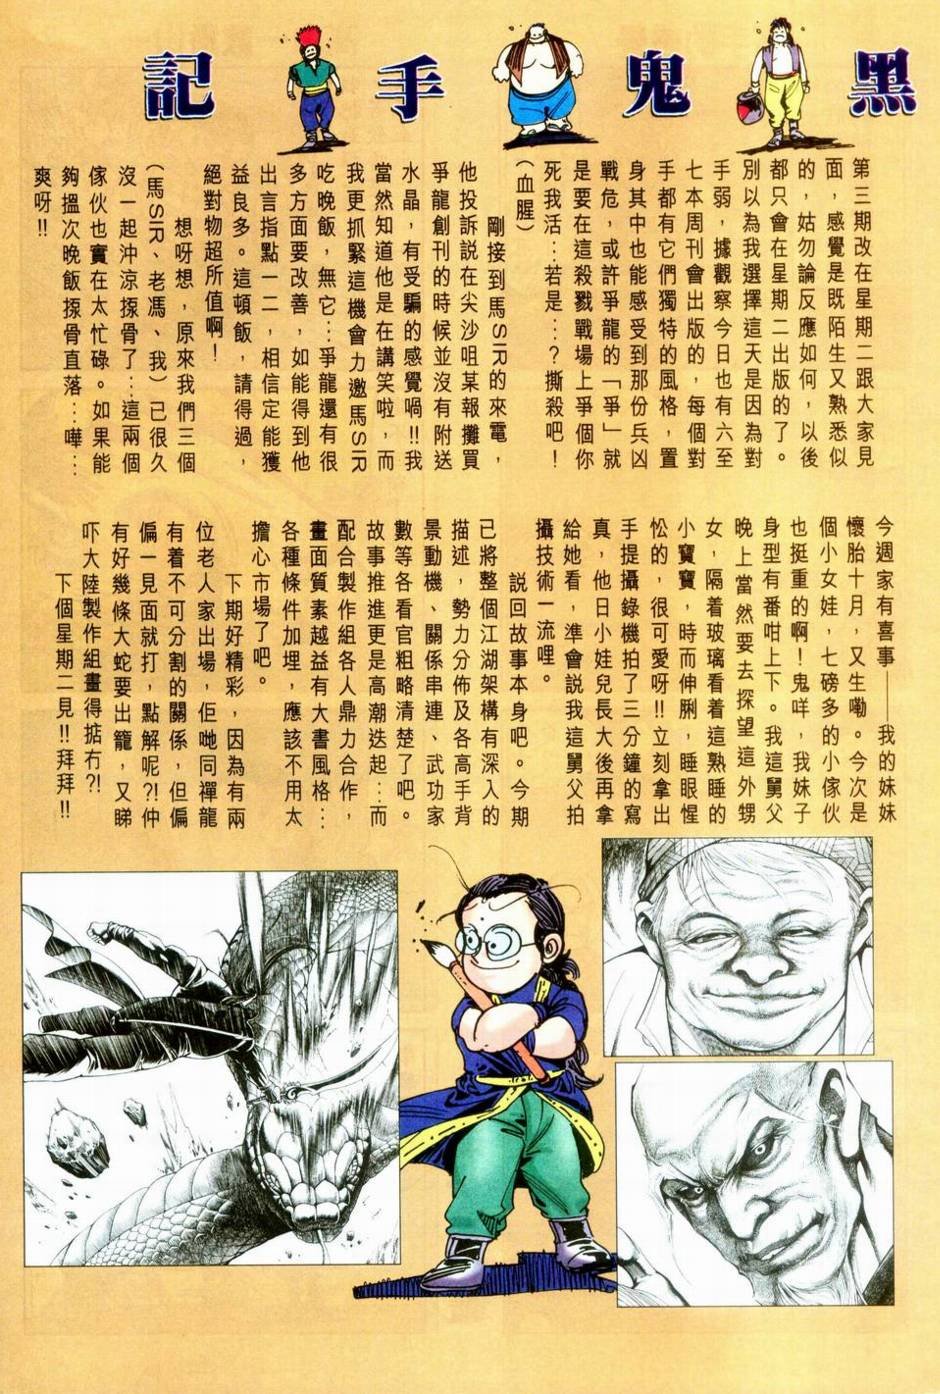 黑鬼手記
第三期改在星期二跟大家見
面，感覺是既陌生又熟悉似
的，姑勿論反應如何，以後
都只會在星期二出版的了。
別以為我選擇這天是因為對
手弱，據觀察今日也有六至
七本周刊會出版的，每個對
手都有它們獨特的風格，置
身其中也能感受到那份兵凶
戰危，或許爭龍的「爭」就
是要在這殺戮戰場上爭個你
死我活…若是…？撕殺吧！
（血腥）
剛接到馬SIR的來電，
他投訴説在尖沙咀某報攤買
爭龍創刊的時候並沒有附送
水晶，有受騙的感覺喎!!我
當然知道他是在講笑啦，而
我更抓緊這機會力邀馬SIR
吃晚飯，無它…爭龍還有很
多方面要改善，如能得到他
出言指點一二，相信定能獲
益良多。這頓飯，請得過，
絕對物超所值啊！
想呀想，原來我們三個
（馬SIR、老馮、我）已很久
沒一起沖涼揼骨了…這兩個
傢伙也實在太忙碌。如果能
夠搵次晚飯揼骨直落…嘩…
爽呀!!
今週家有喜事——我的妹妹
懷胎十月，又生嘞。今次是
個小女娃，七磅多的小傢伙
也挺重的啊！鬼咩，我妹子
身型有番咁上下。我這舅父
晚上當然要去探望這外甥
女，隔着玻璃看着這熟睡的
小寶寶，時而伸脷，睡眼惺
忪的，很可愛呀!!立刻拿出
手提攝錄機拍了三分鐘的寫
真，他日小娃兒長大後再拿
給她看，準會説我這舅父拍
攝技術一流哩。
説回故事本身吧。今期
已將整個江湖架構有深入的
描述，勢力分佈及各高手背
景動機、關係串連、武功家
數等各看官粗略清楚了吧。
故事推進更是高潮迭起…而
配合製作組各人鼎力合作，
畫面質素越益有大書風格…
各種條件加埋，應該不用太
擔心市場了吧。
下期好精彩，因為有兩
位老人家出場，佢哋同禪龍
有着不可分割的關係，但偏
偏一見面就打，點解呢?!仲
有好幾條大蛇要出籠，又睇
吓大陸製作組畫得掂冇?!
下個星期二見!!拜拜!!